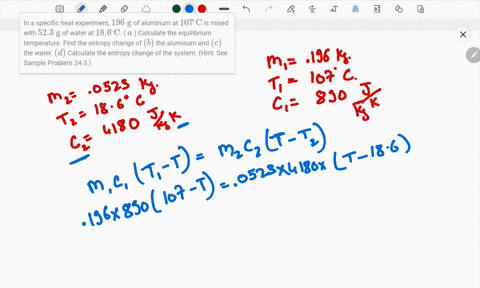 In a specific heat experiment, 196 g of aluminum at 107°C is mixed
with 52.3 g of water at 18.6°C. (a) Calculate the equilibrium
temperature. Find the entropy change of (b) the aluminum and (c)
the water. (d) Calculate the entropy change of the system. (Hint: See
Sample Problem 24-3.)
m₁ = .196 kg.
T₁ = 107°C.
C₁ = 890 J/kg K
m₂ = .0523 kg.
T₂ = 18.6°C
C₂ = 4180 J/kg K
m₁C₁(T₁-T) = m₂C₂(T-T₂)
.196×890(107-T) = .0523×4180×(T-18.6)